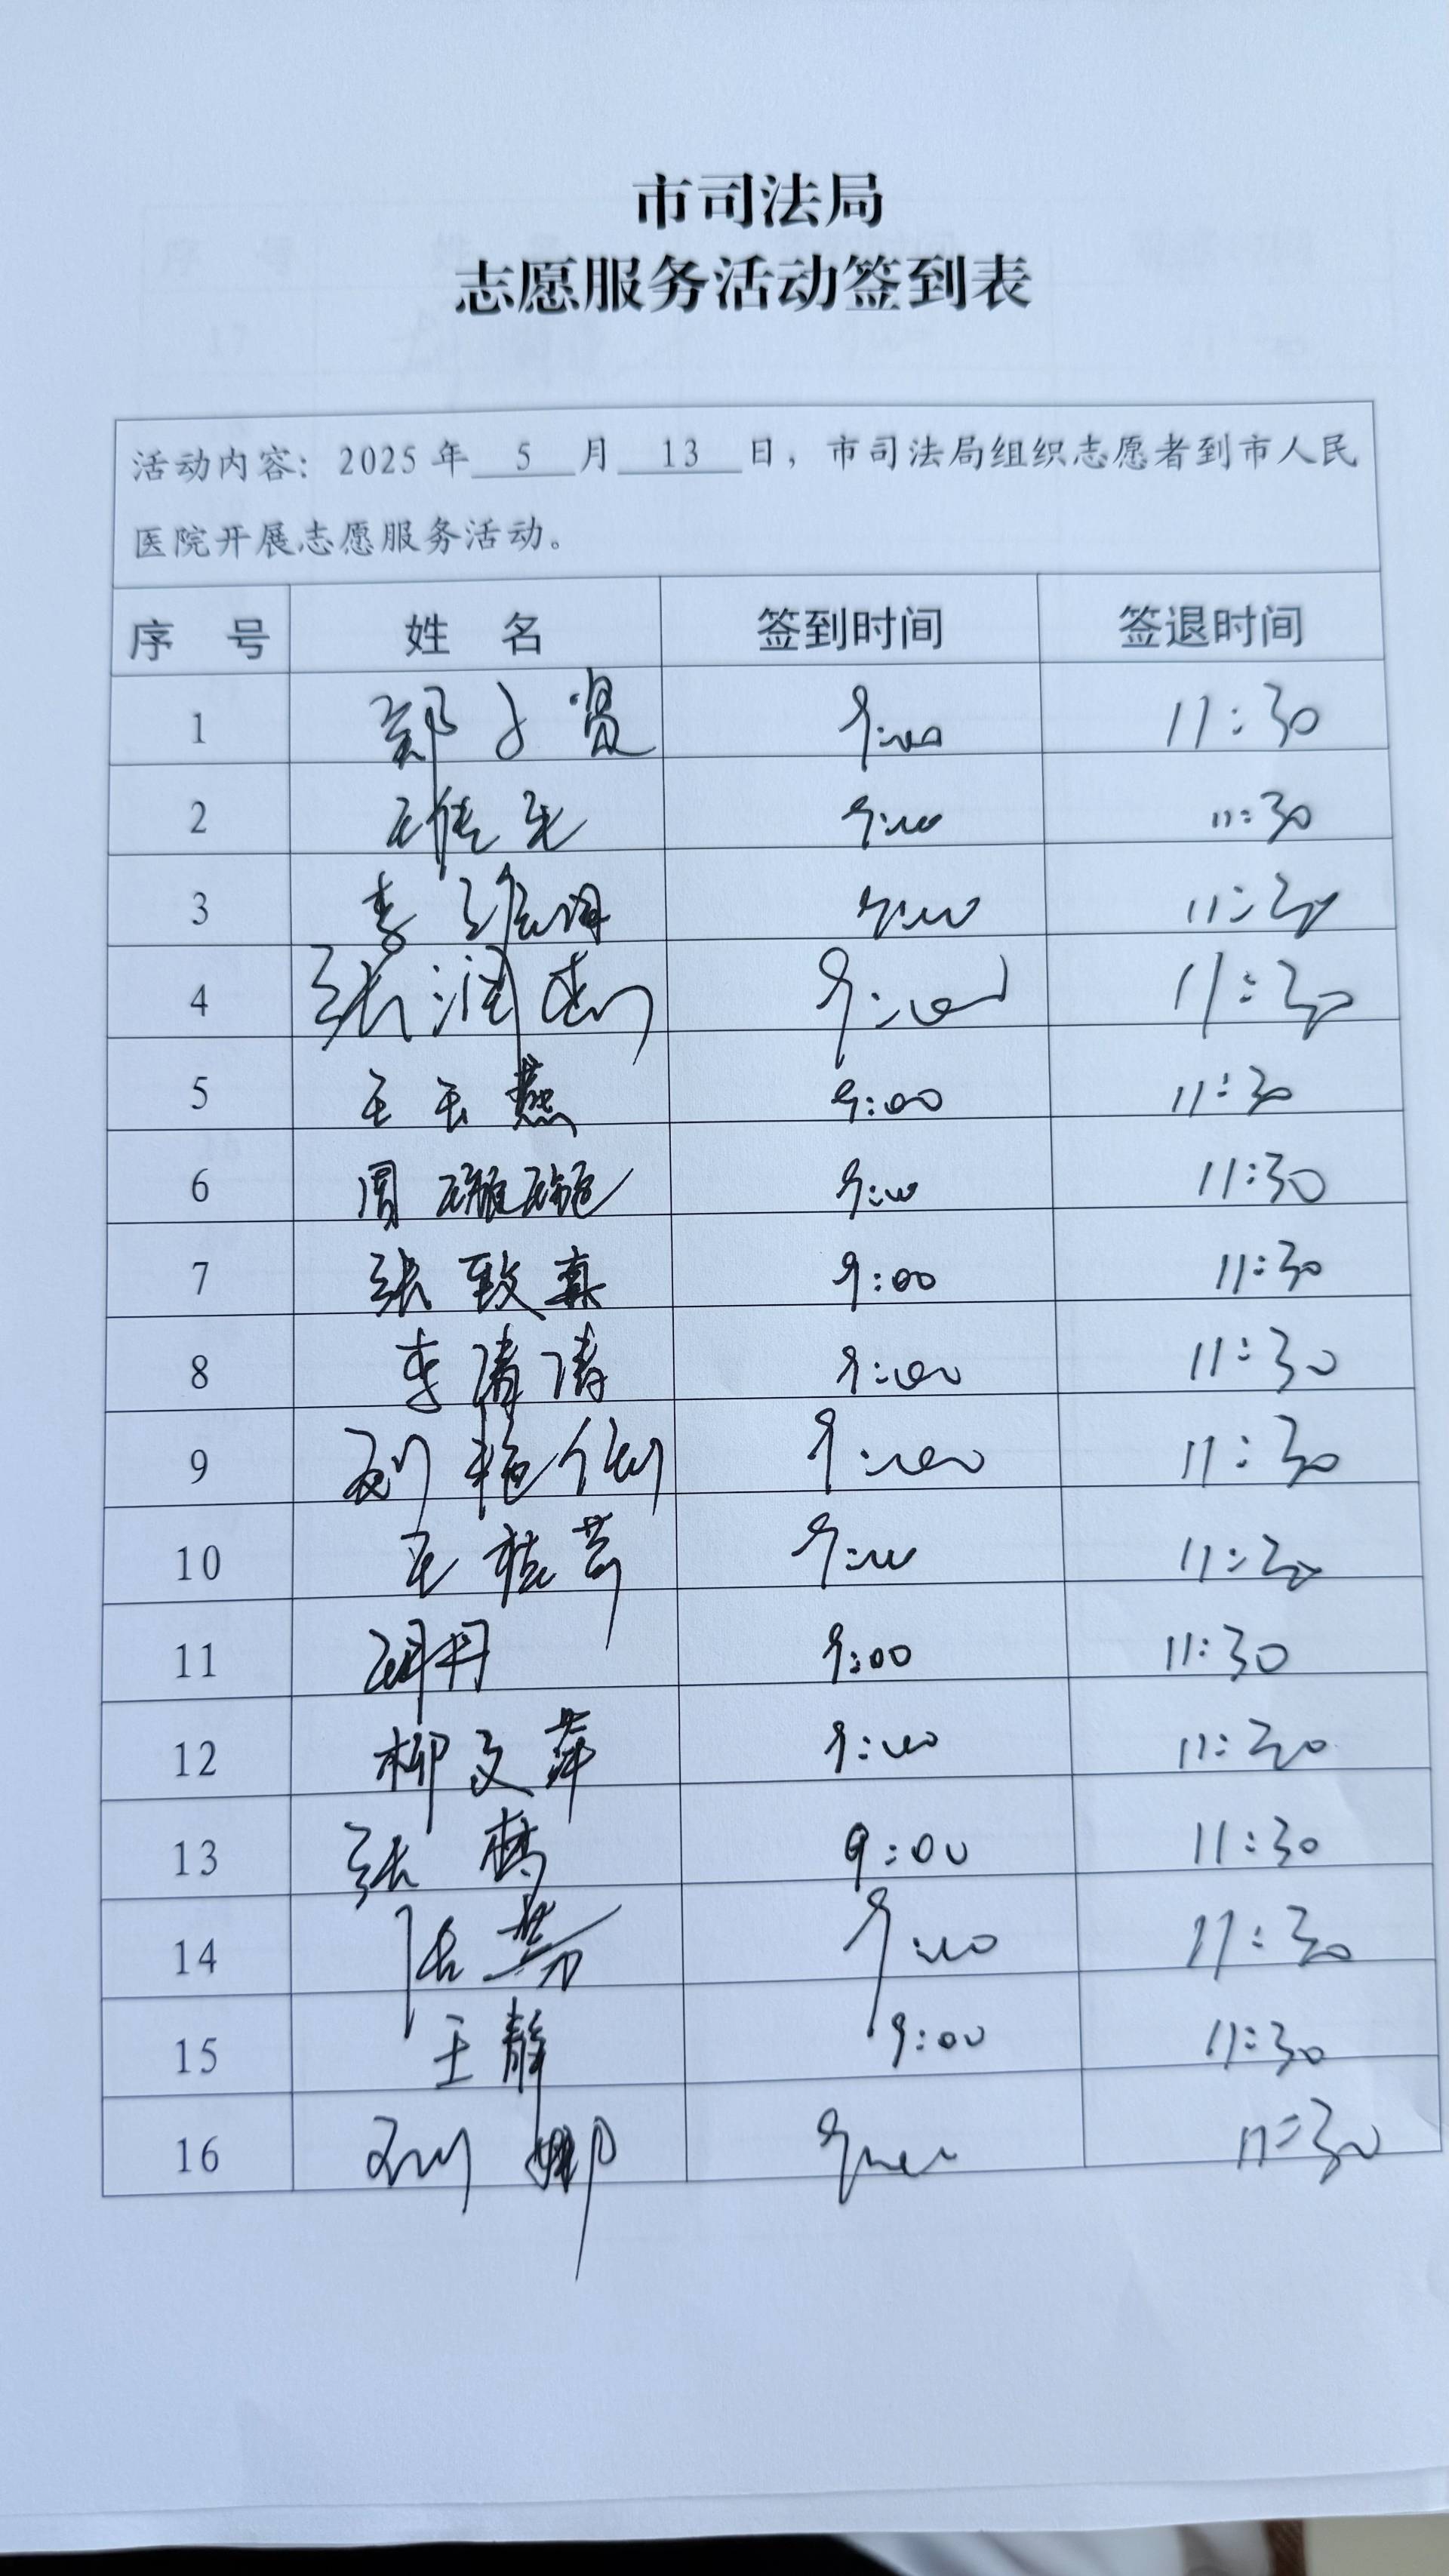 市司法局
志愿服务活动签到表
活动内容：2025年 5 月 13 日，市司法局组织志愿者到市人民
医院开展志愿服务活动。
序 号 姓 名 签到时间 签退时间
1 郑子贤 9:00 11:30
2 王 9:00 11:30
3 李 9:00 11:30
4 张润 9:00 11:30
5 王玉燕 9:00 11:30
6 9:00 11:30
7 张致真 9:00 11:30
8 李清涛 9:00 11:30
9 刘艳 9:00 11:30
10 王桂芳 9:00 11:30
11 丹 9:00 11:30
12 柳文萍 9:00 11:30
13 张 9:00 11:30
14 9:00 11:30
15 王静 9:00 11:30
16 刘娜 9:00 11:30